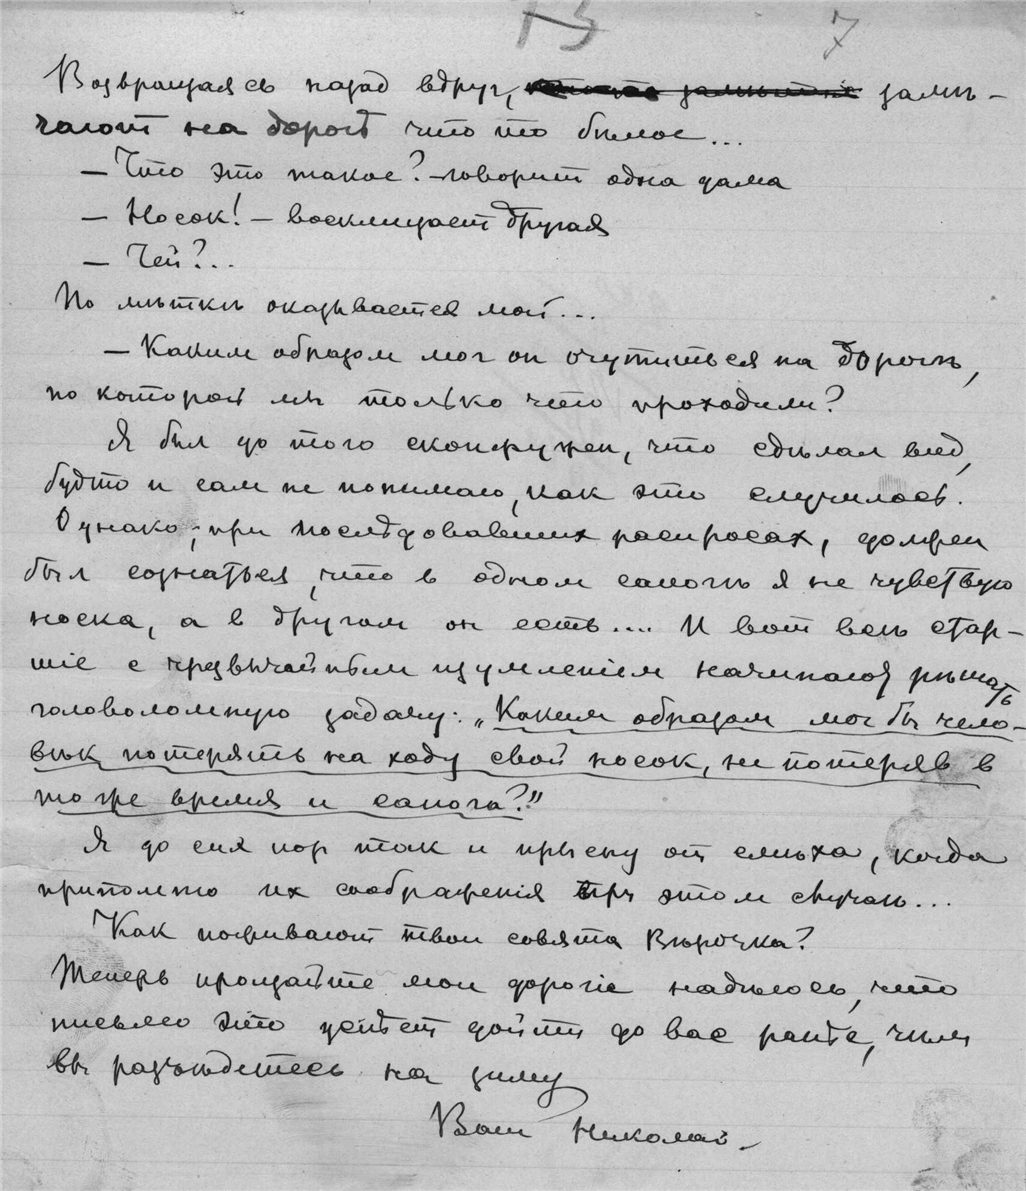 7
Возвращаясь назад вдругъ, замѣ-
чаютъ на дорогѣ что то бѣлое...
— Что это такое? — говоритъ одна дама
— Носок! — восклицаетъ другая
— Чей?..
По мѣткѣ оказывается мой...
— Каким образом мог он очутиться на дорогѣ,
по которой мы только что проходили?
Я был до того сконфужен, что сдѣлал вид,
будто и сам не понимаю, как это случилось.
Однако, при послѣдовавших распросах, должен
был сознаться, что в одном сапогѣ я не чувствую
носка, а в другом он есть.... И вот всѣ стар-
шіе с чрезвычайным изумленіем начинают рѣшать
головоломную задачу: „Каким образом мог бы чело-
вѣк потерять на ходу свой носок, не потеряв в
тоже время и сапога?"
Я до сих пор так и прысну от смѣха, когда
припомню их соображенія при этом случаѣ...
Как поживают твои совята Вѣрочка?
Теперь прощайте мои дорогіе надѣюсь, что
письмо это успѣет дойти до вас ранѣе, чѣм
вы разъѣдетесь на зиму
Ваш Николай.